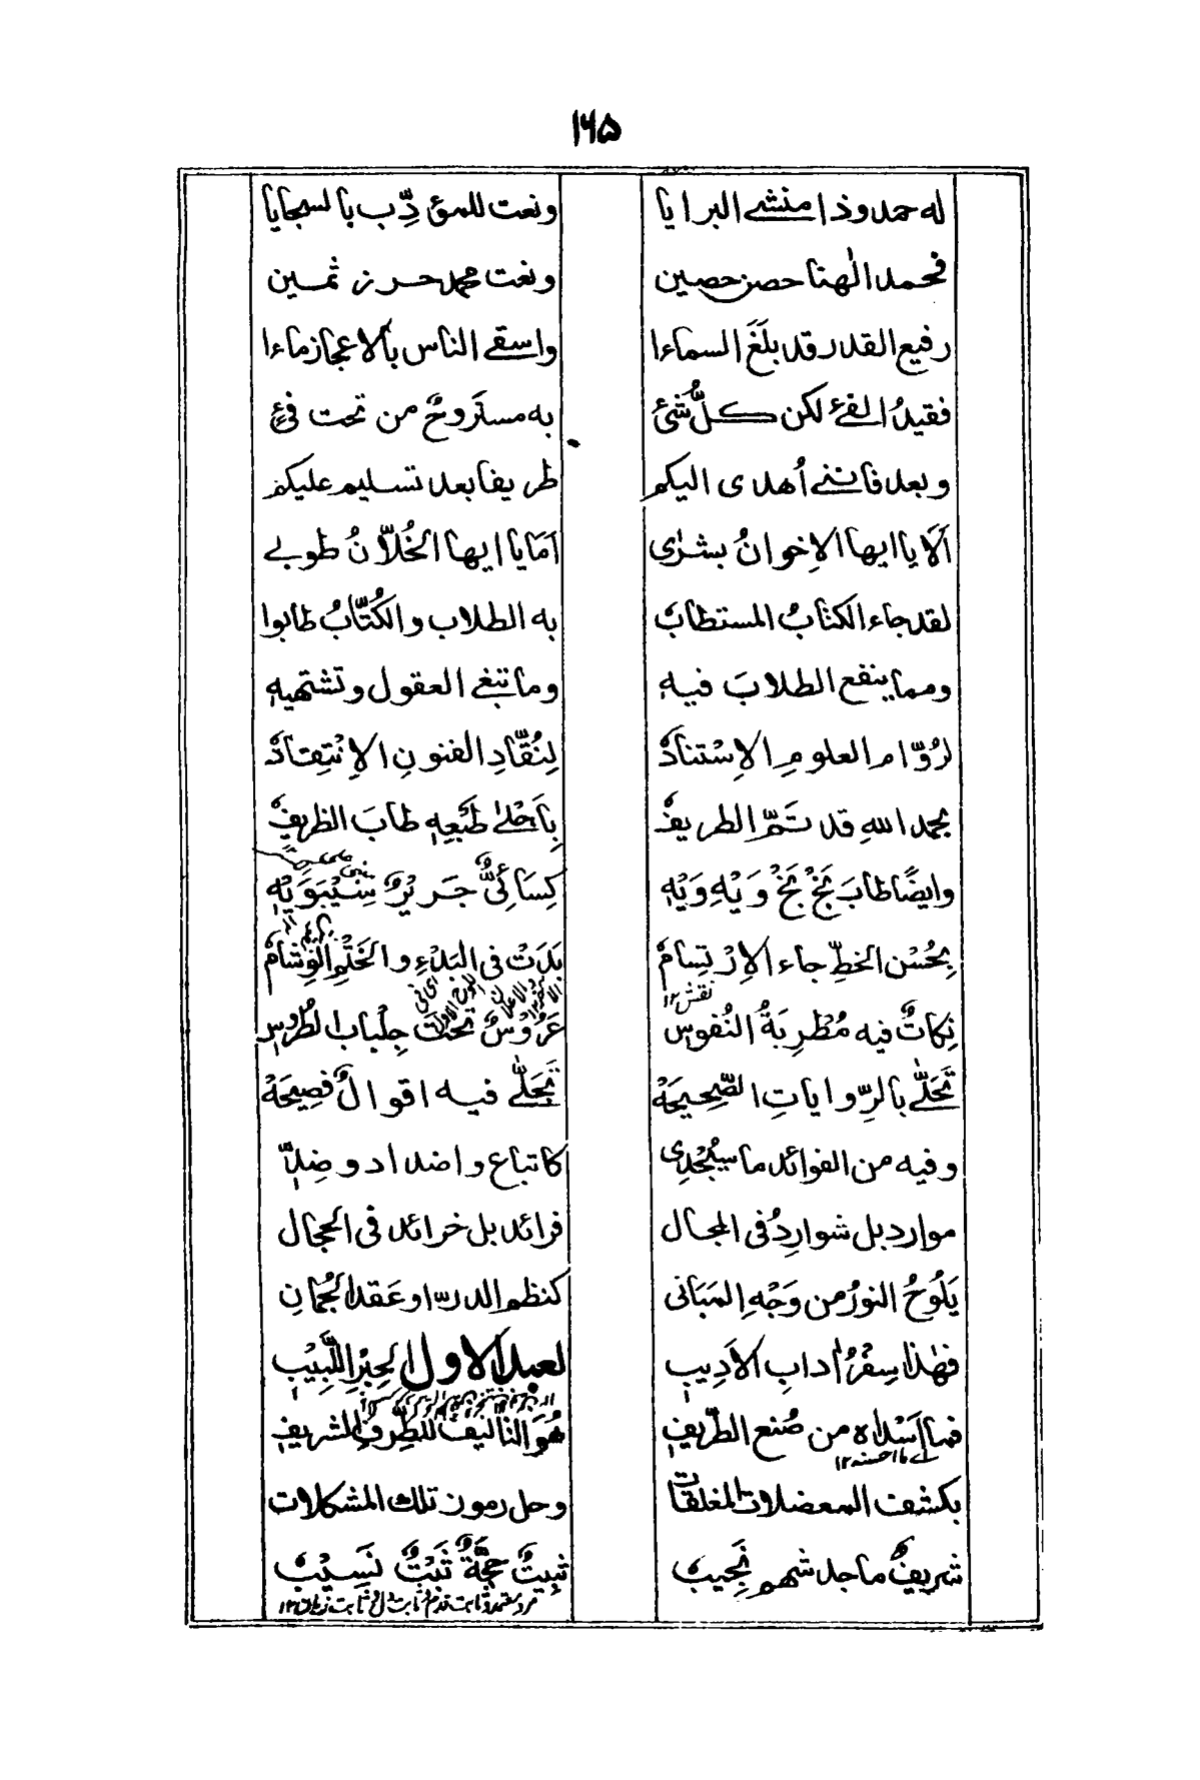 ۱۶۵
له حمد وذا منشے البرایا ونعت للمؤدِّب بالسجایا
فحمد الٰهنا حصن حصین ونعت محمد حرز ثمین
رفیع القدر قد بلَغَ السماءا واسقے الناس بالاعجاز ماءا
فقیدُ الفئ لکن کلُّ شئ به مستروحٌ من تحت فئٍ
وبعد فاننے أهدی الیکم طریفا بعد تسلیم علیکم
اَلَا یا ایها الاِخوانُ بشرٰی اَمَا یا ایها الخُلّانُ طوبے
لقد جاء الکتابُ المستطابُ به الطلاب والکُتّابُ طابوا
ومما ینفع الطلابَ فیهِ وما تبغی العقول وتشتهیهِ
لرُوّامِ العلومِ الاِسْتنادُ لِنُقّادِ الفنونِ الاِنْتِقادُ
بحمد اللهِ قد تَمّ الطریفُ بِاَحْلٰے طَبْعِهٖ طابَ الظریفُ
وایضًا طابَ بَخْ بَخْ وَیْهِ وَیْهِ کِسَائِیٌّ جَریْرٌ سِیْبَوَیْهِ
بِحُسْن الخطِّ جاء الاِرْتِسامُ بَدَتْ فی البَدْءِ والخَتْمِ الوِشامُ
نقش ۱۲
نِکاتٌ فیه مُطْرِبَةُ النُفوسِ عَرُوْسٌ تحتَ جِلْباب الطُرُوْسِ
تَحَلّٰے بالرِّوایاتِ الصَّحِیحَةْ تَجَلّٰے فیه اقوالٌ فصِیحَةْ
وفیه من الفوائد ما سیُجْدِی کاتباع واضداد وضِدٍّ
موارد بل شوارِدُ فی المجال فرائد بل خرائد فی الحجال
یَلُوحُ النورُ من وَجْهِ المَبَانی کنظم الدر او عَقد الجُمانِ
فهٰذا سِفْرُ اٰداب الاَدِیبِ لعبد الاول الحِبْرِ اللَّبِیْبِ
فما اَسْداہ من صُنع الطَّریفِ هُوَ التالیفُ للطِّرفِ الشریفِ
اے ما احسنه ۱۲
بکشف المعضلات المغلقات وحل رموز تلك المشکلات
شریفٌ ماجد شهم نَجِیبٌ ثبِیتٌ حجّةٌ ثَبْتٌ نَسِیْبٌ